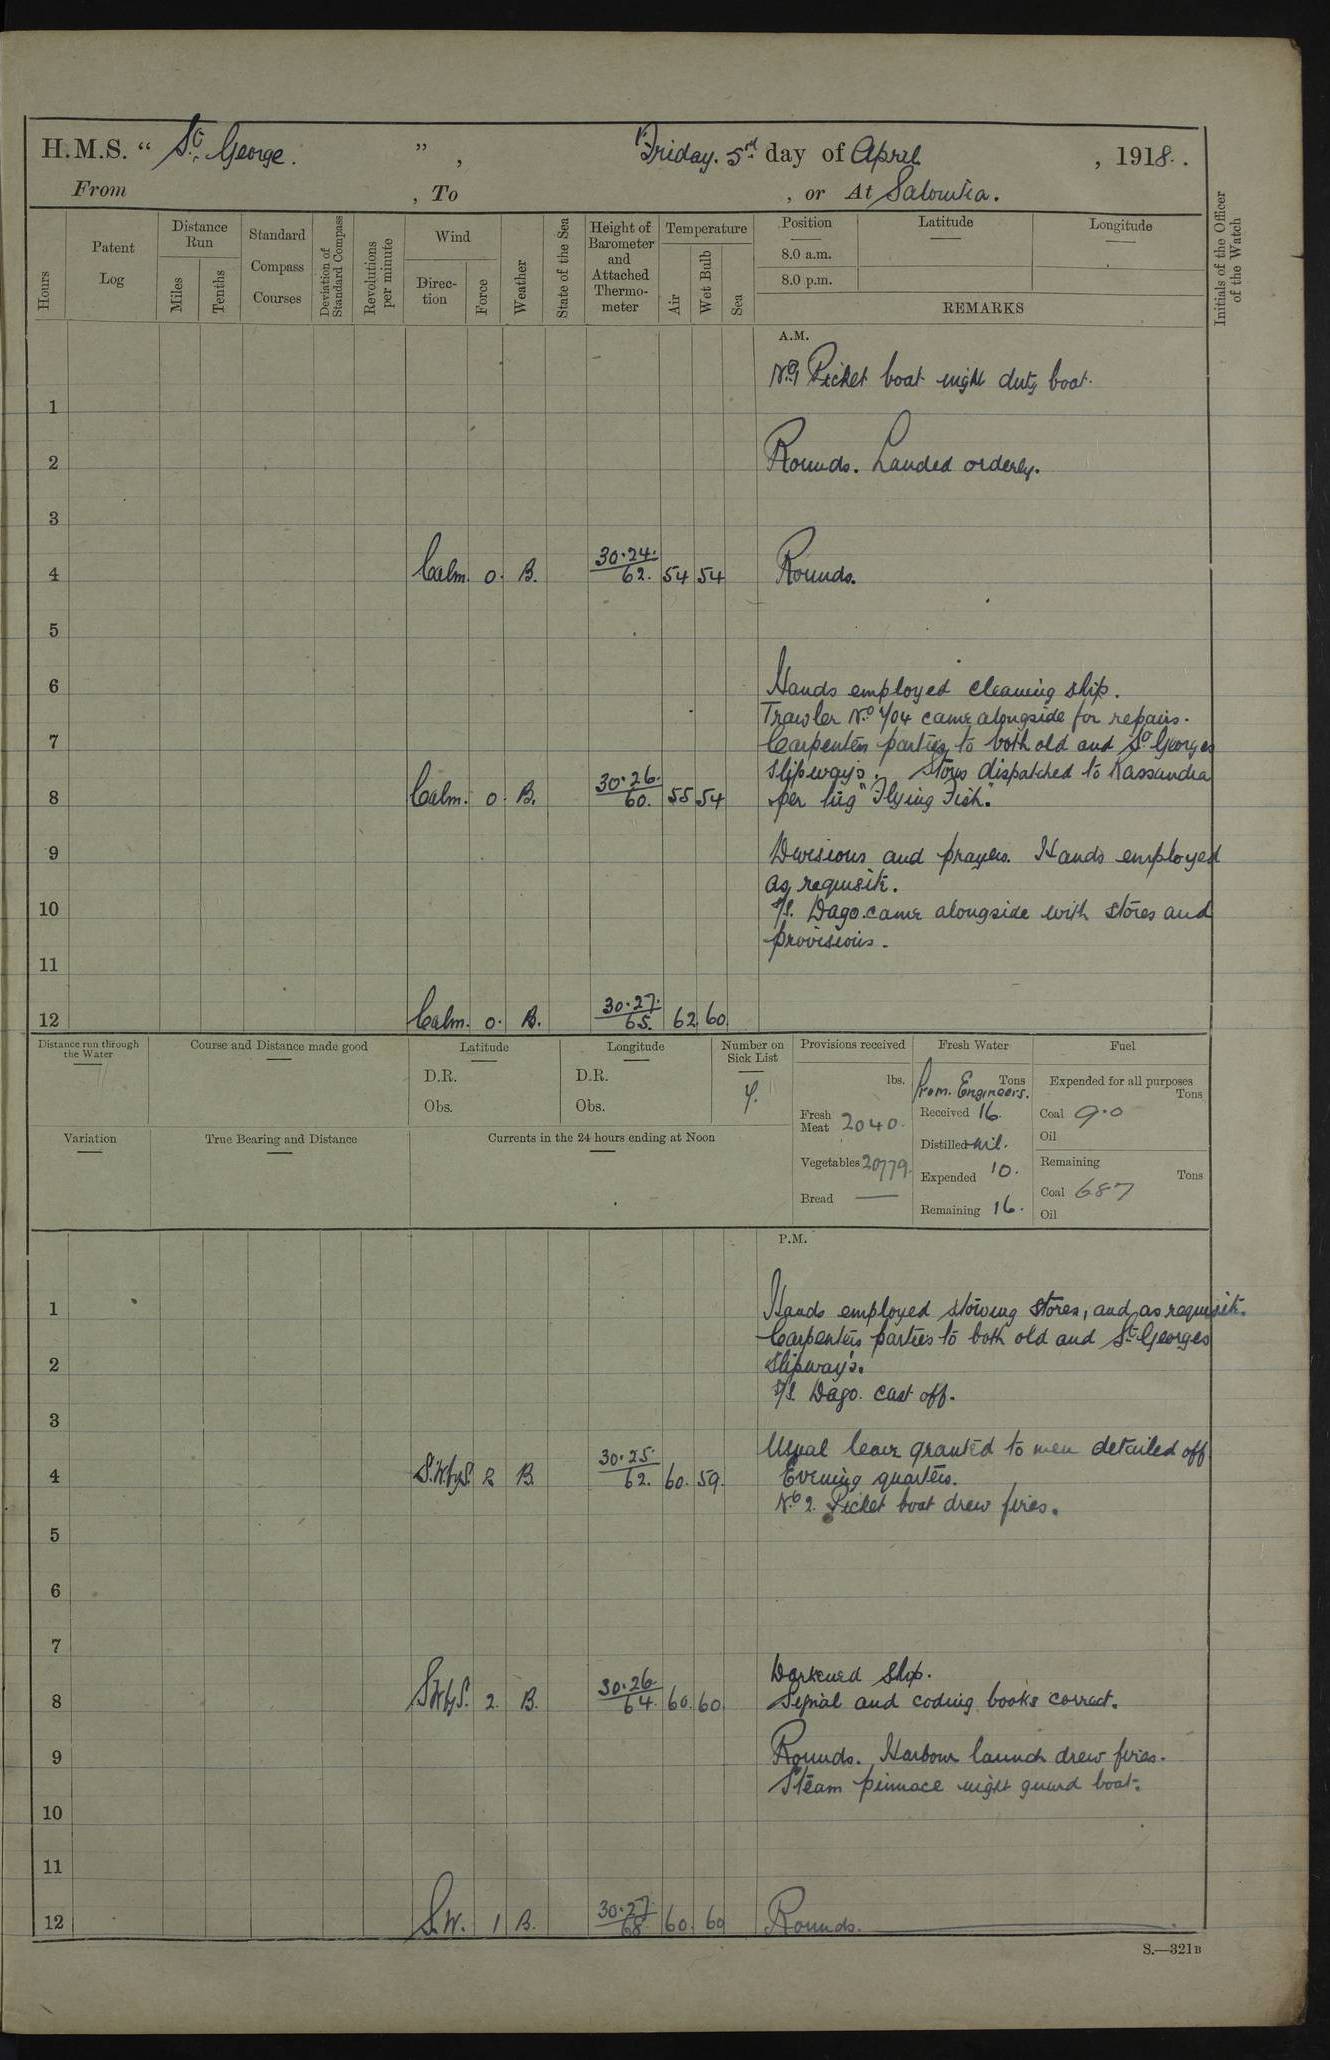 H.M.S. “ St. George. ” , Friday. 5rd day of April , 1918.
From , To , or At Salonika.
Hours
Patent Log
Distance Run
Miles
Tenths
Standard Compass Courses
Deviation of Standard Compass
Revolutions per minute
Wind
Direc-tion
Force
Weather
State of the Sea
Height of Barometer and Attached Thermo-meter
Temperature
Air
Wet Bulb
Sea
Position
8.0 a.m.
8.0 p.m.
Latitude
Longitude
REMARKS
Initials of the Officer of the Watch
A.M.
No 1 Picket boat night duty boat.
1
2 Rounds. Landed orderly.
3
4 Calm. 0. B. 30.24. 62. 54 54 Rounds.
5
6 Hands employed cleaning ship.
Trawler No. 1/04 came alongside for repairs.
7 Carpenters parties to both old and St. Georges
slipway's. Stores dispatched to Kassandra
8 Calm. 0. B. 30.26. 60. 55 54 per tug "Flying Fish".
9 Divisions and prayers. Hands employed
as requisite.
10 S/S. Dago. came alongside with stores and
provisions.
11
12 Calm. 0. B. 30.27. 65. 62 60.
Distance run through the Water
Course and Distance made good
Latitude
D.R.
Obs.
Longitude
D.R.
Obs.
Number on Sick List
4.
Provisions received
lbs.
Fresh Meat 2040.
Vegetables 20779.
Bread —
Fresh Water
Tons
From. Engineers.
Received 16.
Distilled nil.
Expended 10.
Remaining 16.
Fuel
Expended for all purposes
Tons
Coal 9.0
Oil
Remaining
Tons
Coal 687
Oil
Variation
True Bearing and Distance
Currents in the 24 hours ending at Noon
P.M.
1 Hands employed stowing stores, and as requisite.
Carpenters parties to both old and St. Georges
2 slipway's.
S/S. Dago. cast off.
3
Usual leave granted to men detailed off
4 S.W.byS. 2 B. 30.25. 62. 60. 59. Evening quarters.
No. 2. Picket boat drew fires.
5
6
7
Darkened Ship.
8 SWbyS. 2. B. 30.26. 64. 60. 60. Signal and coding books correct.
9 Rounds. Harbour launch drew fires.
Steam pinnace night guard boat.
10
11
12 S.W. 1 B. 30.27. 68. 60. 60 Rounds.
S.—321B